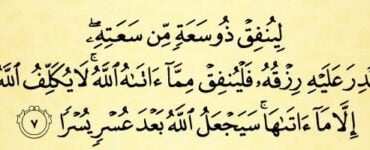 لِيُنفِقْ ذُو سَعَةٍ مِّن سَعَتِهِۦ ۖ
قُدِرَ عَلَيْهِ رِزْقُهُۥ فَلْيُنفِقْ مِمَّآ ءَاتَىٰهُ ٱللَّهُ ۚ لَا يُكَلِّفُ ٱللَّهُ
إِلَّا مَآ ءَاتَىٰهَا ۚ سَيَجْعَلُ ٱللَّهُ بَعْدَ عُسْرٍ يُسْرًا ٧